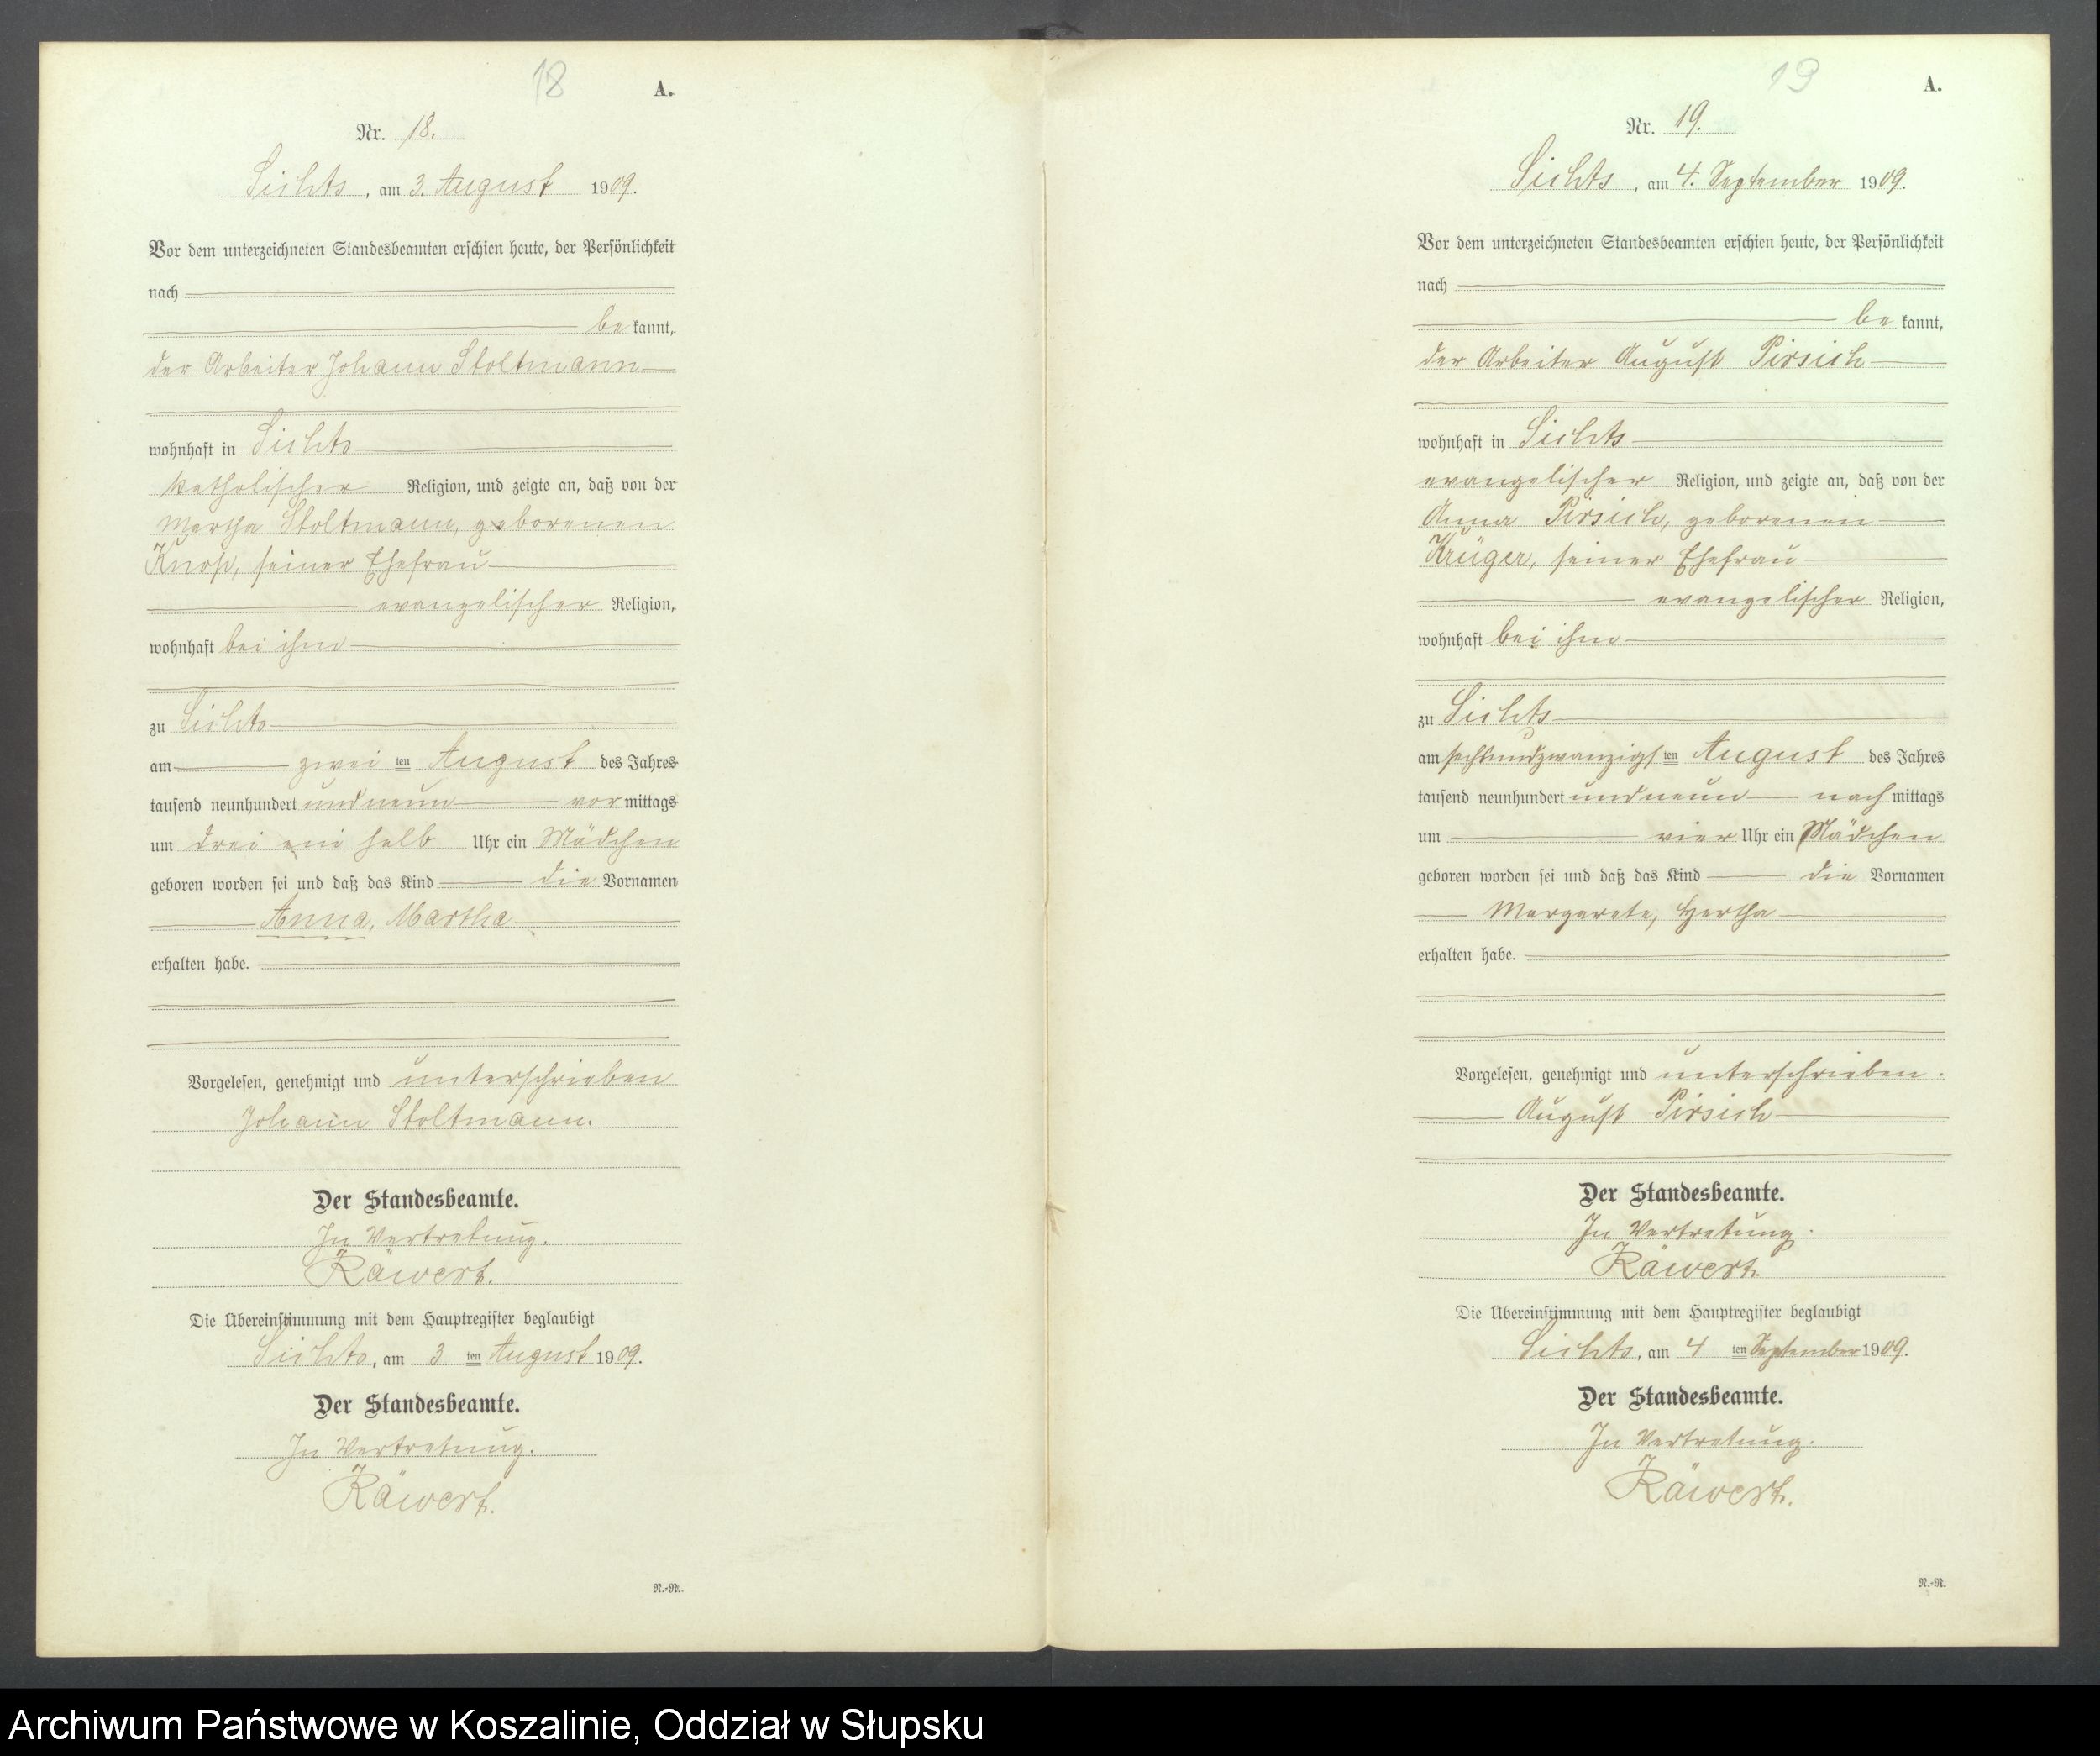 18
A.
Nr. 18.
Sichts, am 3. August 1909.
Vor dem unterzeichneten Standesbeamten erschien heute, der Persönlichkeit
nach
bekannt,
der Arbeiter Johann Stoltmann
wohnhaft in Sichts
katholischer Religion, und zeigte an, daß von der
Martha Stoltmann, geborenen
Knop, seiner Ehefrau
evangelischer Religion,
wohnhaft bei ihm
zu Sichts
am zweiten August des Jahres
tausend neunhundert undneun vormittags
um drei ein halb Uhr ein Mädchen
geboren worden sei und daß das Kind die Vornamen
Anna, Martha
erhalten habe.
Vorgelesen, genehmigt und unterschrieben
Johann Stoltmann.
Der Standesbeamte.
In Vertretung.
Räwert.
Die Übereinstimmung mit dem Hauptregister beglaubigt
Sichts, am 3 ten August 1909.
Der Standesbeamte.
In Vertretung.
Räwert.
R.-R.
19
A.
Nr. 19.
Sichts, am 4. September 1909.
Vor dem unterzeichneten Standesbeamten erschien heute, der Persönlichkeit
nach
bekannt,
der Arbeiter August Pirsich
wohnhaft in Sichts
evangelischer Religion, und zeigte an, daß von der
Anna Pirsich, geborenen
Krüger, seiner Ehefrau
evangelischer Religion,
wohnhaft bei ihm
zu Sichts
am sechsundzwanzigsten August des Jahres
tausend neunhundert undneun nachmittags
um vier Uhr ein Mädchen
geboren worden sei und daß das Kind die Vornamen
Margarete, Hertha
erhalten habe.
Vorgelesen, genehmigt und unterschrieben.
August Pirsich
Der Standesbeamte.
In Vertretung.
Räwert.
Die Übereinstimmung mit dem Hauptregister beglaubigt
Sichts, am 4 ten September 1909.
Der Standesbeamte.
In Vertretung.
Räwert.
R.-R.
Archiwum Państwowe w Koszalinie, Oddział w Słupsku